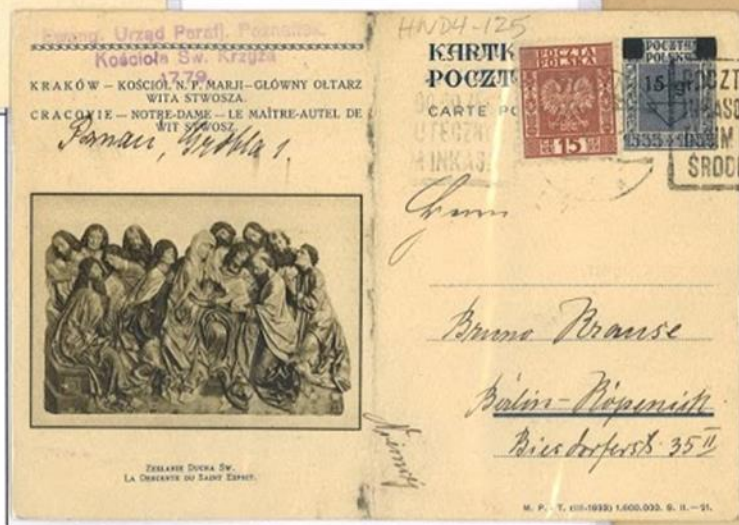 Ewang. Urząd Parafj. Poznańsk.
Kościoła Św. Krzyża
1779
KRAKÓW — KOŚCIOŁ N. P. MARJI — GŁÓWNY OŁTARZ
WITA STWOSZA.
CRACOVIE — NOTRE-DAME — LE MAÎTRE-AUTEL DE
WIT STWOSZ.
Grobla 1.
ZESŁANIE DUCHA ŚW.
LA DESCENTE DU SAINT ESPRIT.
HND4-125
KARTK
POCZT
CARTE PO
POCZTA
POLSKA
15
POCZTA
POLSKA
15 gr.
POCZT
INKASO
ŚROD
Herrn
Bruno Krause
Berlin-Köpenick
Biesdorferstr. 35 II
Niemcy
M. P. - T. (III-1933) 1.600.000. S. II.—21.